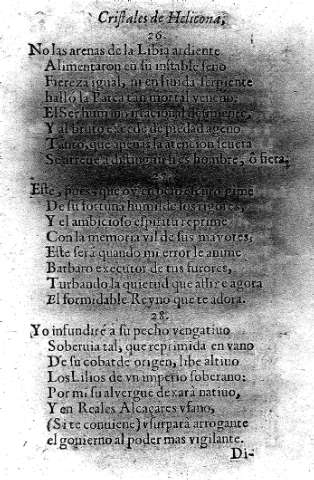 Cristales de Helicona,
26.
No las arenas de la Libia ardiente
Alimentaron en su instable seno
Fiereza igual, ni en fluida serpiente
hallò la Parca tan mortal veneno:
El Ser humano, irracional desmiente,
Y al bruto excede, de piedad ageno
Tanto, que apenas la atencion seuera
Se atreue a distinguir si es hombre, ô fiera.
Este, pues, que oy en
De su fortuna humilde los rigores,
Y el ambicioso espiritu reprime
Con la memoria vil de sus mayores;
Este será quando mi error le anime
Barbaro executor de tus furores,
Turbando la quietud que assiste agora
El formidable Reyno que te adora.
28.
Yo infundirè a su pecho vengatiuo
Soberuia tal, que reprimida en vano
De su cobarde origen, libe altiuo
Los Lilios de vn imperio soberano:
Por mi su alvergue dexarà natiuo,
Y en Reales Alcaçares vfano,
(Si te conuiene) vsurparà arrogante
el gouierno al poder mas vigilante.
Di-